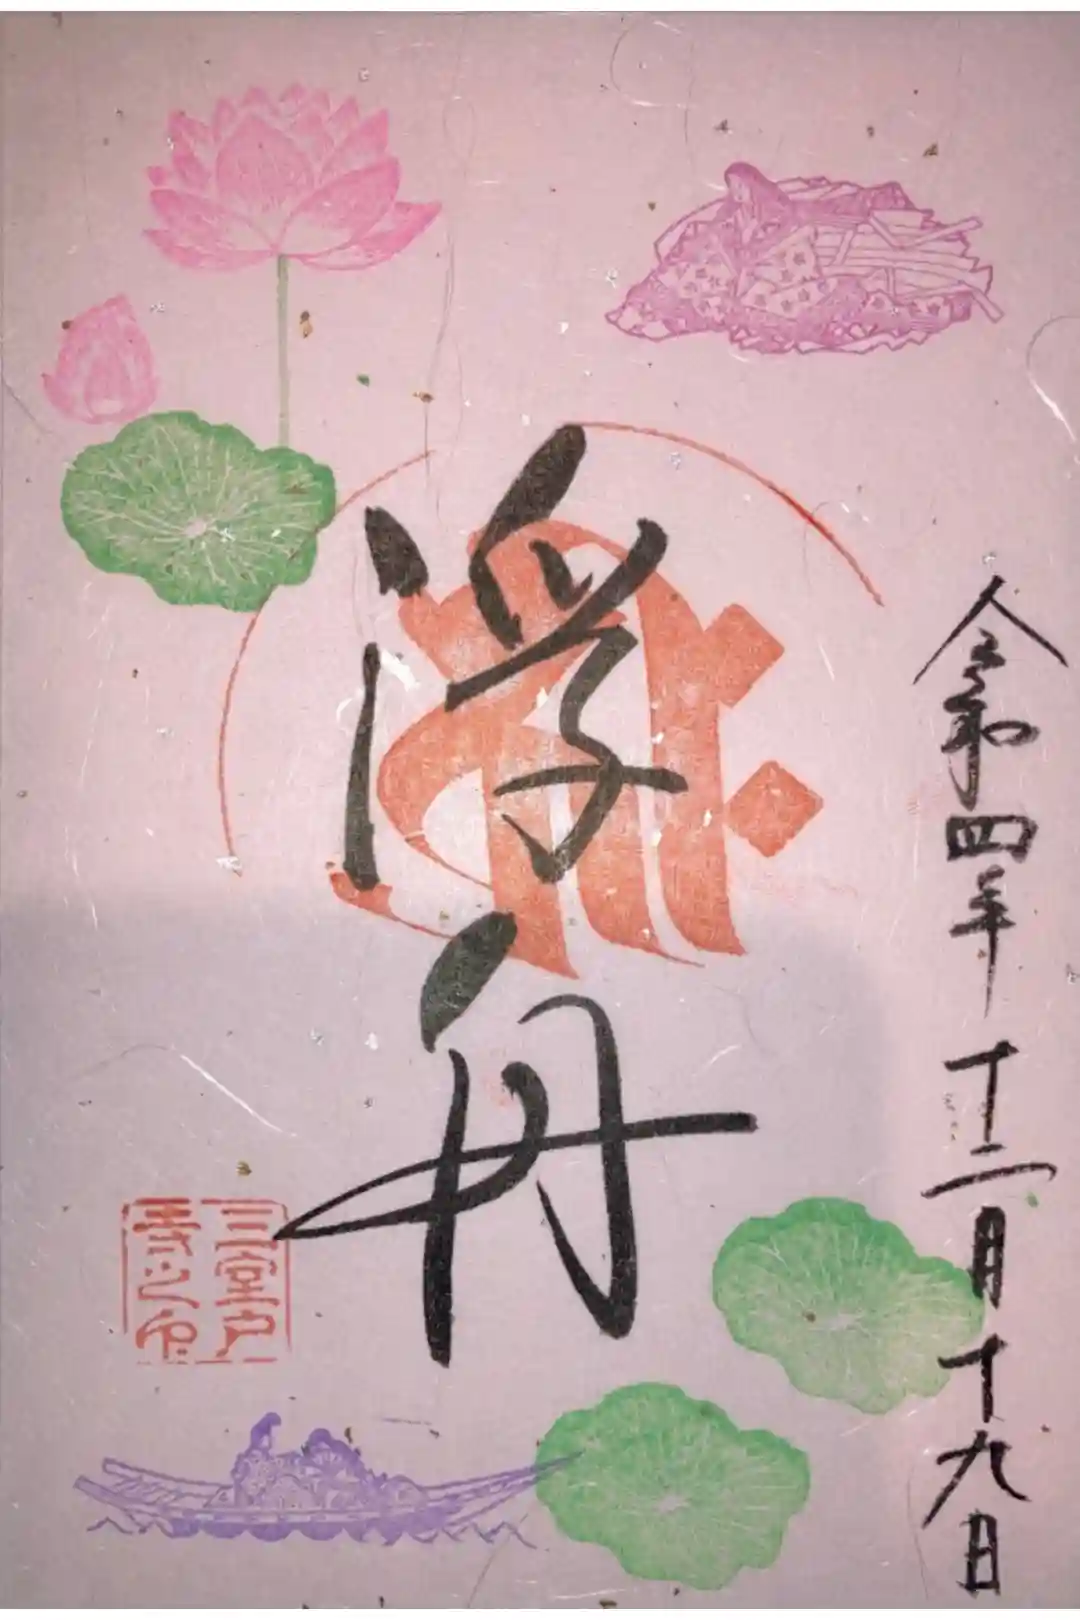 令和四年十二月十九日
浮舟
三室戸
寺之印